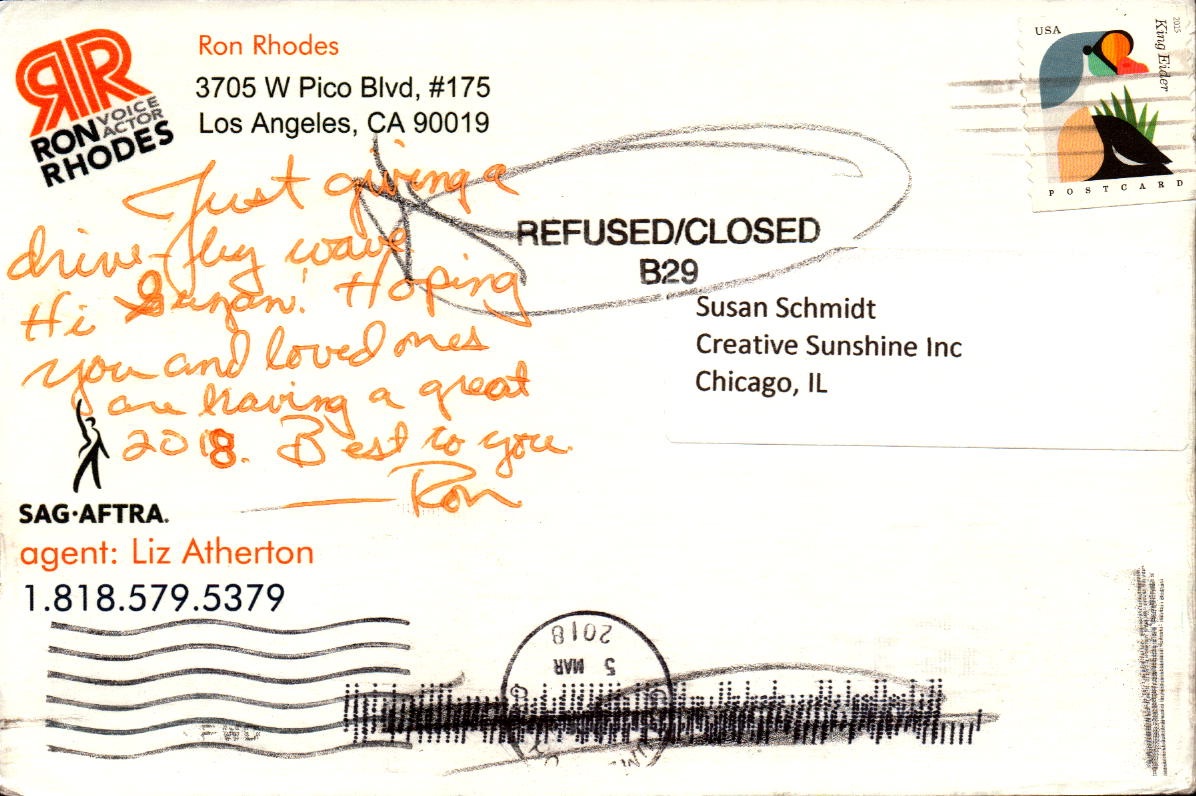 RR
RON VOICE ACTOR
RHODES
Ron Rhodes
3705 W Pico Blvd, #175
Los Angeles, CA 90019
USA
2015
King Eider
POSTCARD
Just giving a
drive-by wave
Hi Susan! Hoping
you and loved ones
are having a great
2018. Best to you.
— Ron
REFUSED/CLOSED
B29
Susan Schmidt
Creative Sunshine Inc
Chicago, IL
SAG·AFTRA.
agent: Liz Atherton
1.818.579.5379
FWD
5 MAR
2018